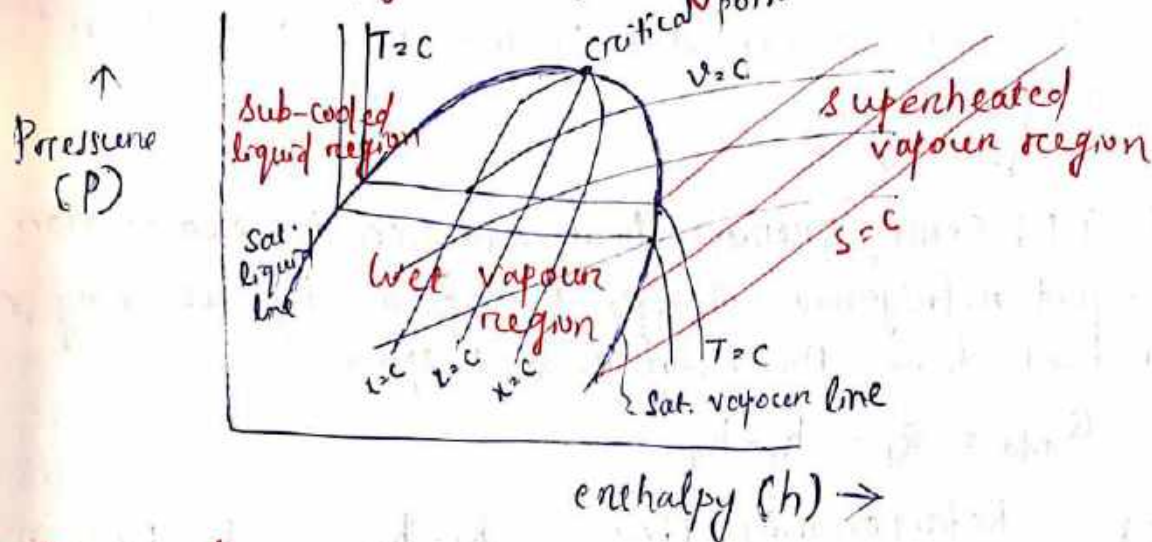 Critical
T=C
v=C
↑
Pressure
(P)
sub-cooled
liquid region
superheated
vapour region
s=C
Sat.
liquid
line
Wet vapour
region
x=C
x=C
x=C
T=C
Sat. vapour line
enthalpy (h) →